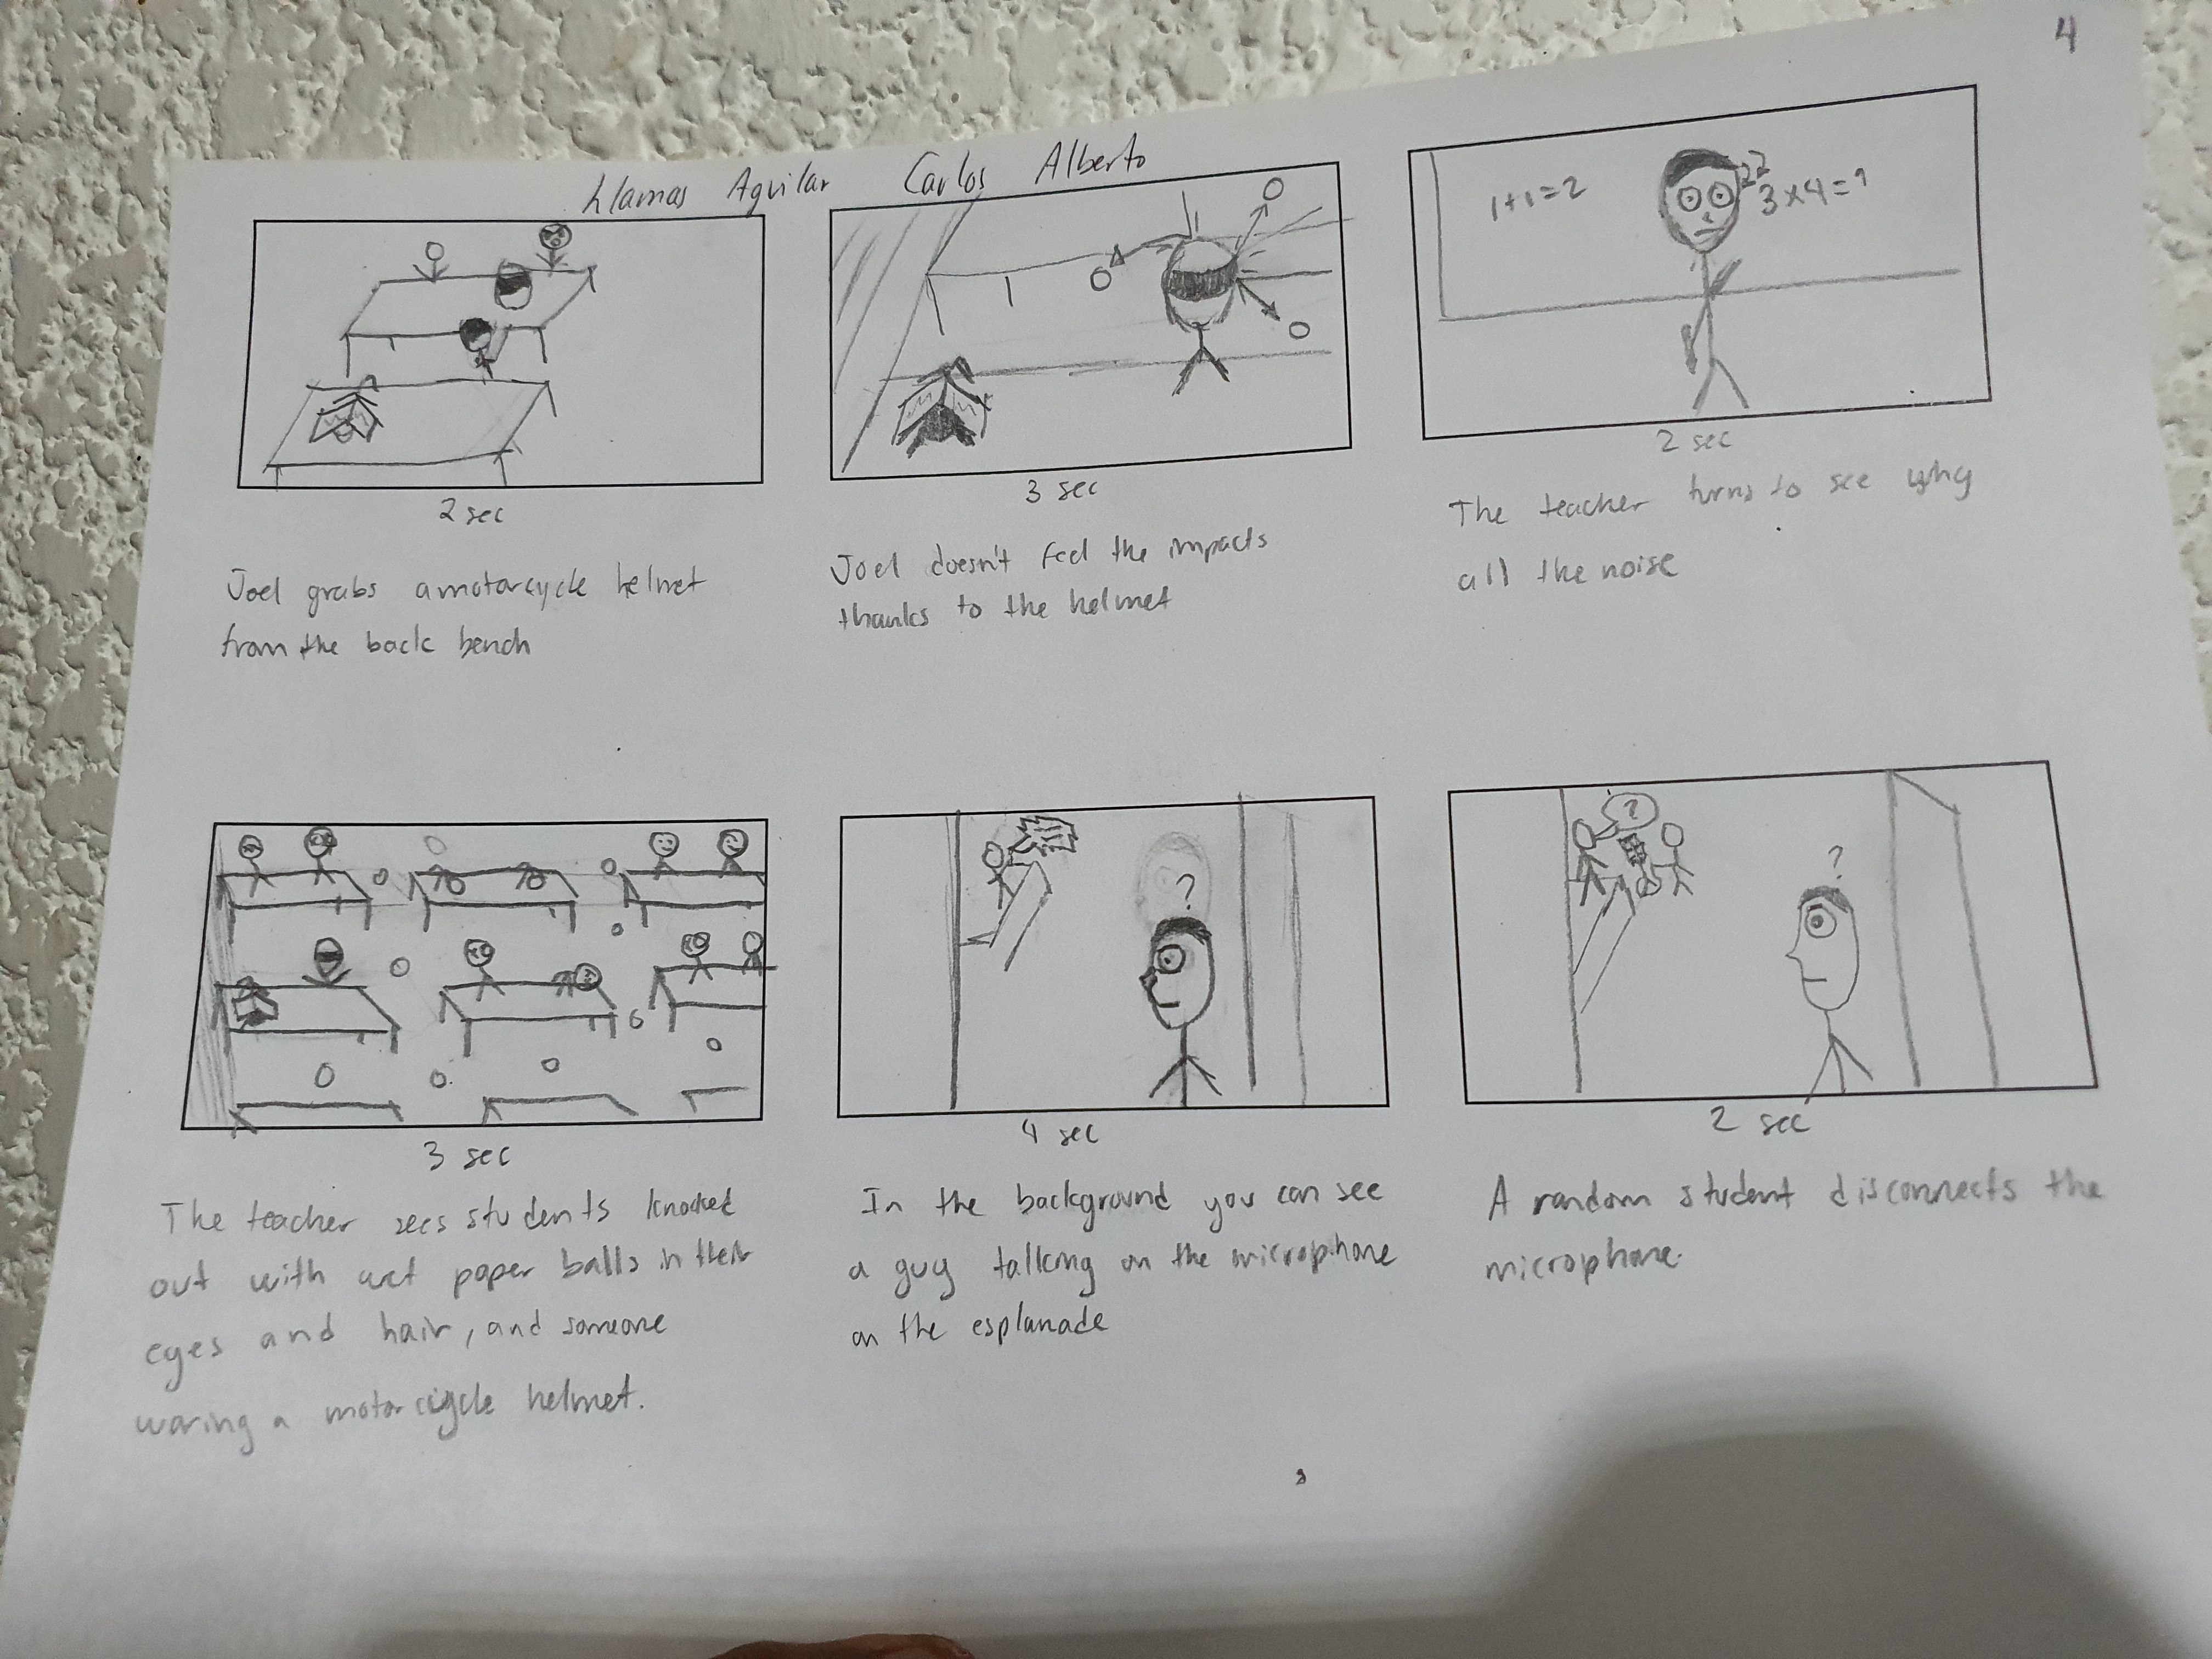 4
Llamas Aguilar Carlos Alberto
1+1=2
3x4=?
2 sec
Joel grabs a motorcycle helmet
from the back bench
3 sec
Joel doesn't feel the impacts
thanks to the helmet
2 sec
The teacher turns to see why
all the noise
3 sec
The teacher sees students knocked
out with wet paper balls in their
eyes and hair, and someone
waring a motorcigcle helmet.
?
4 sec
In the background you can see
a guy talking on the microphone
on the esplanade
?
?
2 sec
A random student disconnects the
microphone.